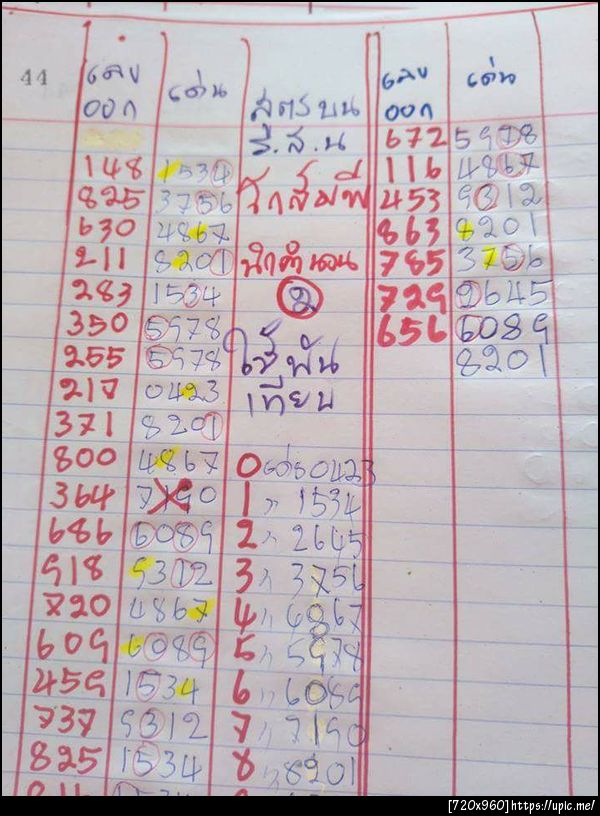 44
เลข เด่น สูตรบน เลข เด่น
ออก ออก
ร.ส.น 672 5978
148 1534 116 4867
825 3756 453 9312
630 4867 863 8201
211 8201 785 3756
283 1534 ② 729 2645
350 5978 656 6089
255 5978 ใช้พัน 8201
217 0423 เทียบ
371 8201
800 4867 0 0423
364 7190 1 " 1534
686 6089 2 " 2645
918 9312 3 " 3756
720 4867 4 " 4867
609 6089 5 " 5978
459 1534 6 " 6089
737 9312 7 " 7190
825 1534 8 " 8201
[720x960]https://upic.me/